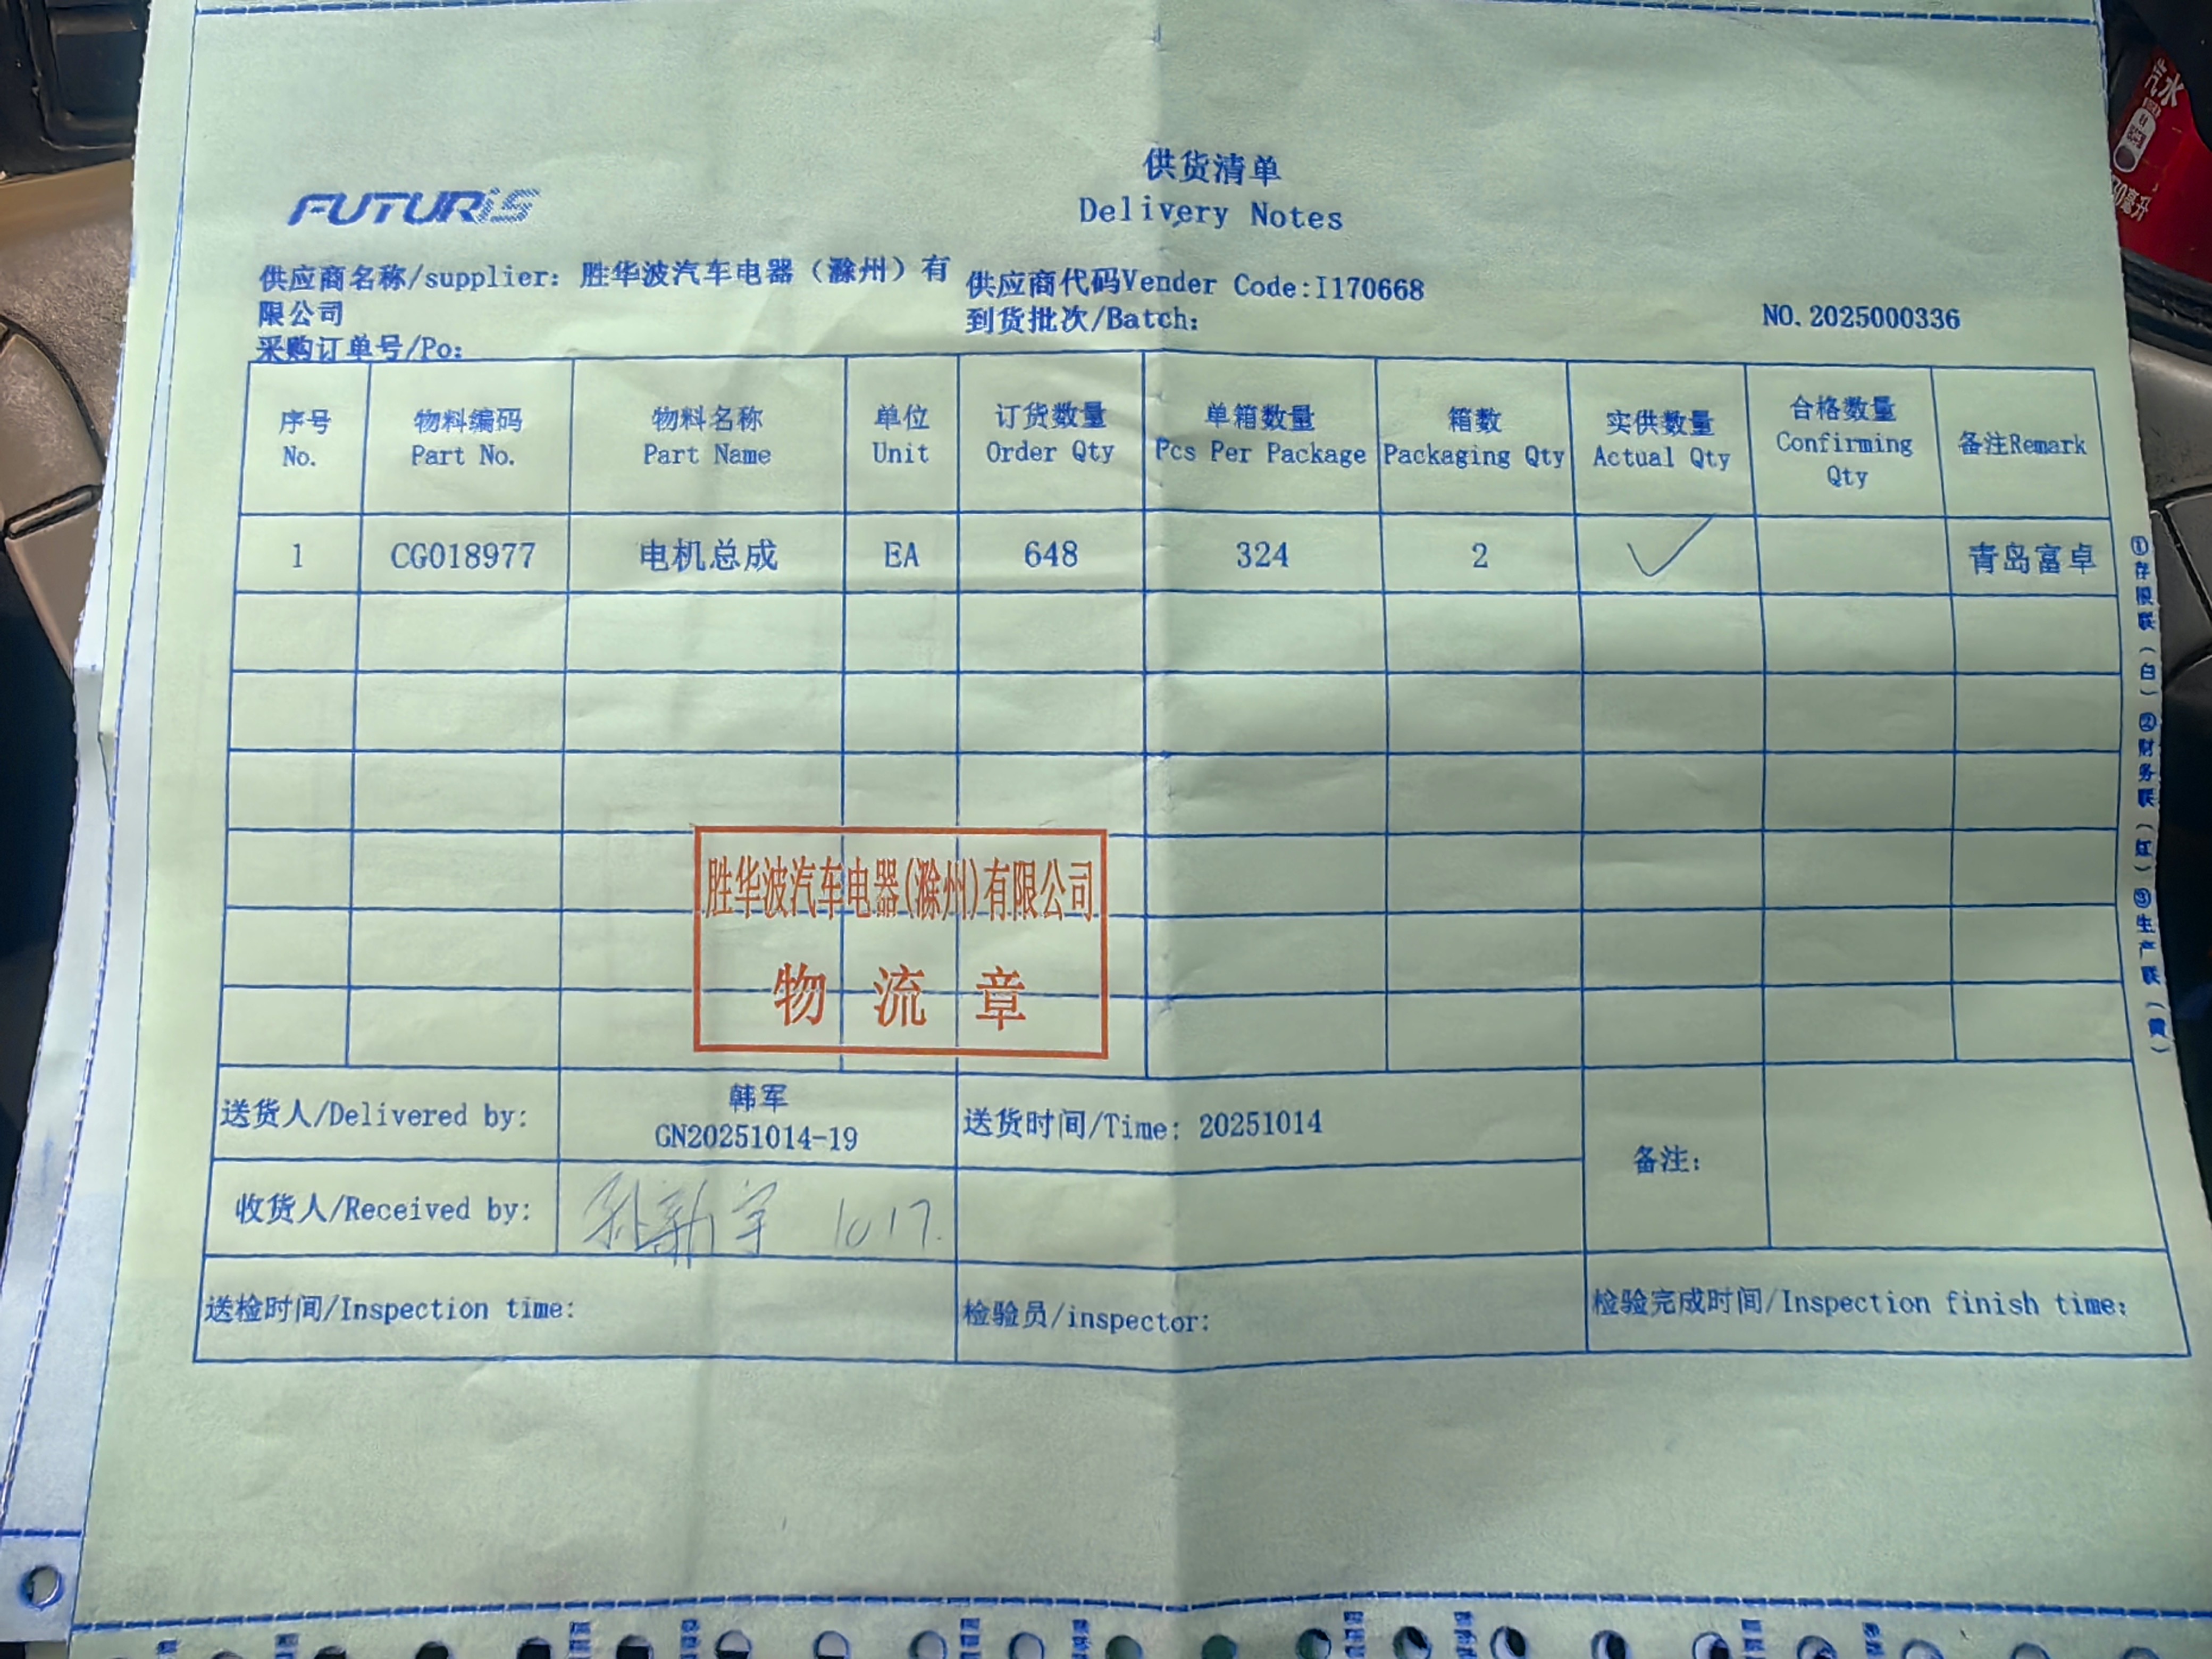 供货清单
Delivery Notes
FUTURIS
供应商名称/supplier: 胜华波汽车电器（滁州）有
限公司
供应商代码Vender Code:I170668
到货批次/Batch:
NO.2025000336
采购订单号/Po:
序号 物料编码 物料名称 单位 订货数量 单箱数量 箱数 实供数量 合格数量 备注Remark
No. Part No. Part Name Unit Order Qty Pcs Per Package Packaging Qty Actual Qty Confirming Qty
1 CG018977 电机总成 EA 648 324 2 ✓ 青岛富卓
胜华波汽车电器(滁州)有限公司
物流章
送货人/Delivered by: 韩军
GN20251014-19
送货时间/Time: 20251014
备注:
收货人/Received by: 孙新宇 1017.
送检时间/Inspection time:
检验员/inspector:
检验完成时间/Inspection finish time:
①存根联（白）②财务联（红）③生产联（黄）
汽水
毫升